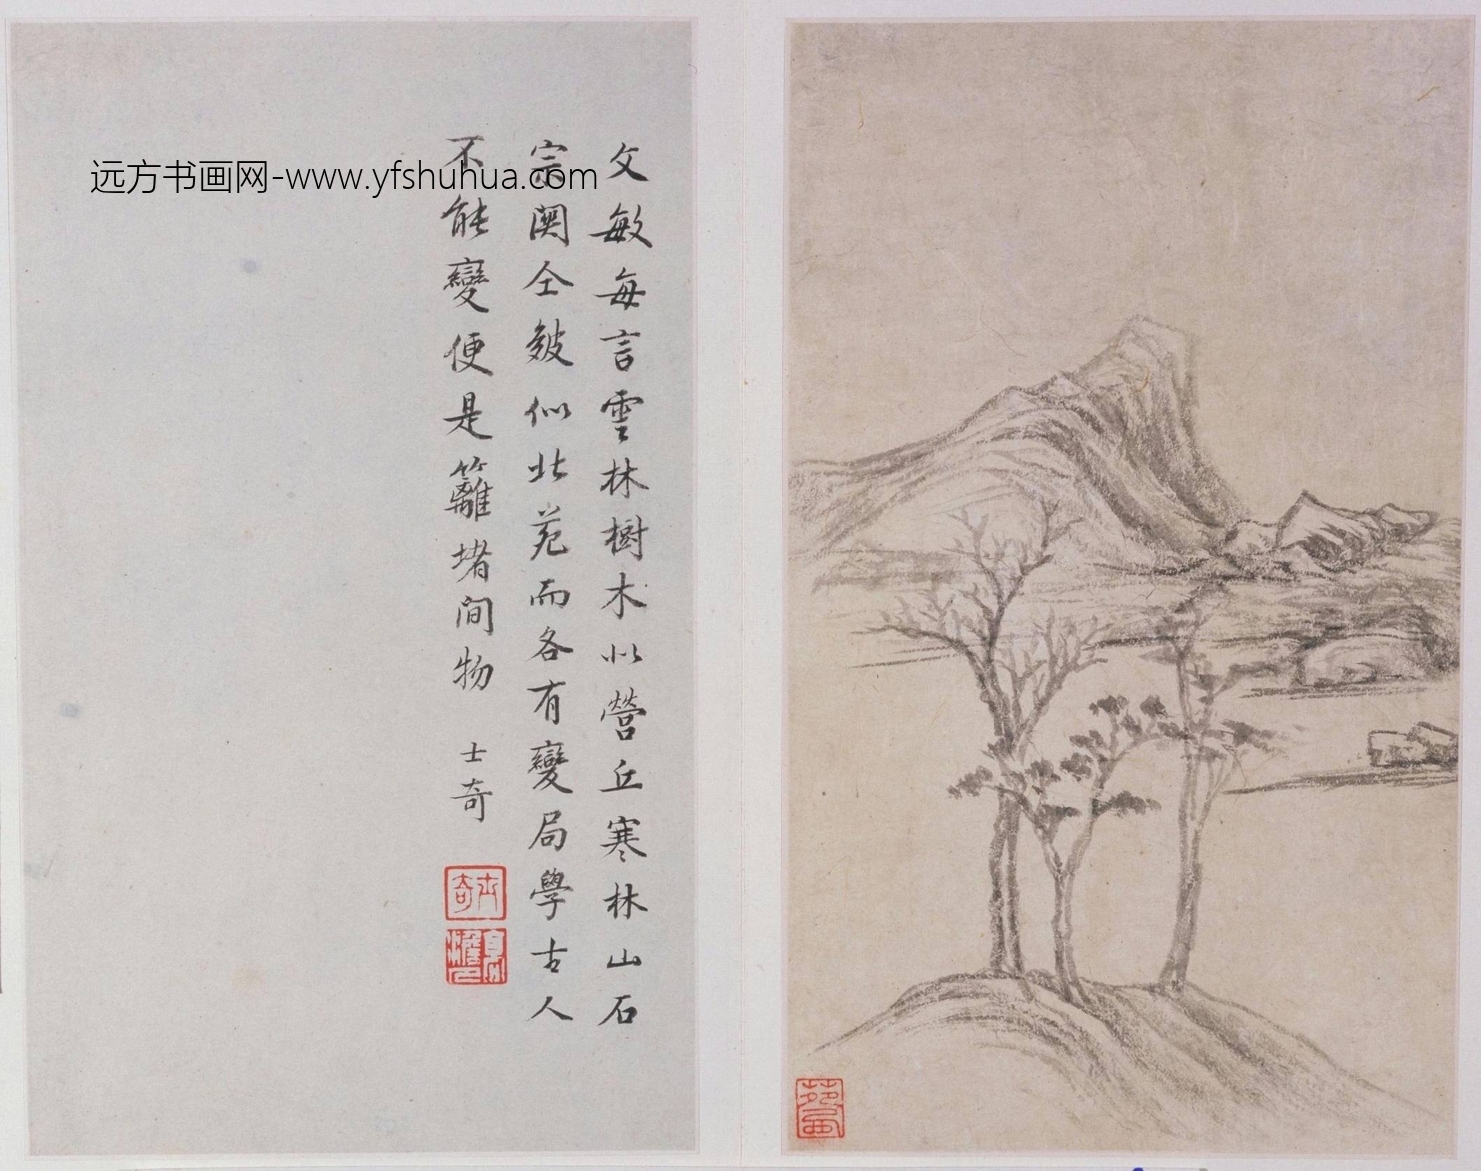 文敏每言雲林樹木似營丘寒林山石
宗關仝皴似北苑而各有變局學古人
不能變便是籬堵間物
士奇
远方书画网-www.yfshuhua.com
士奇